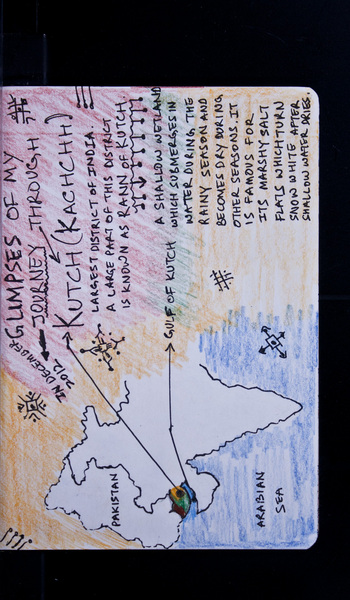 GLIMPSES OF MY
JOURNEY THROUGH
KUTCH (KACHCHH)
IN DECEMBER
2012
LARGEST DISTRICT OF INDIA.
A LARGE PART OF THIS DISTRICT
IS KNOWN AS RANN OF KUTCH
A SHALLOW WETLAND
WHICH SUBMERGES IN
WATER DURING, THE
RAINY SEASON AND
BECOMES DRY DURING
OTHER SEASONS. IT
IS FAMOUS FOR
ITS MARSHY SALT
FLATS WHICH TURN
SNOW WHITE AFTER
SHALLOW WATER DRIES.
GULF OF KUTCH
PAKISTAN
ARABIAN
SEA